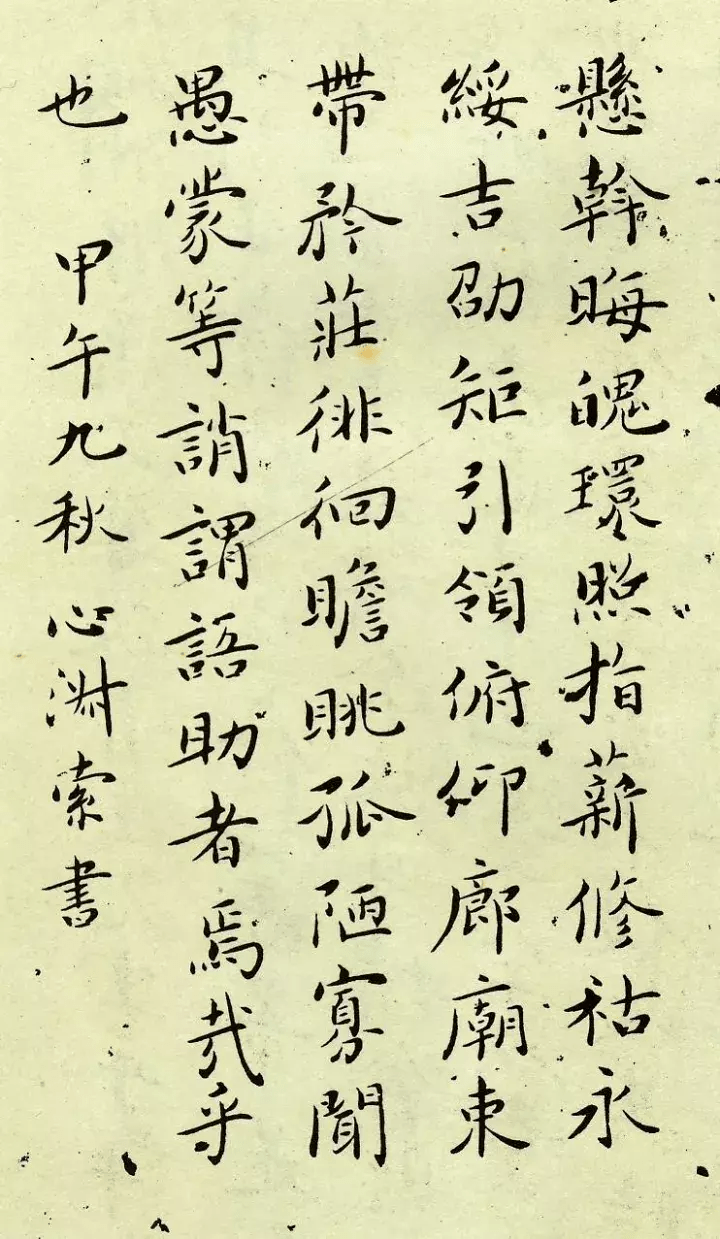 懸斡晦魄環照指薪修祜永
綏吉劭矩引領俯仰廊廟束
帶矜莊徘徊瞻眺孤陋寡聞
愚蒙等誚謂語助者焉哉乎
也 甲午九秋 心澍索書